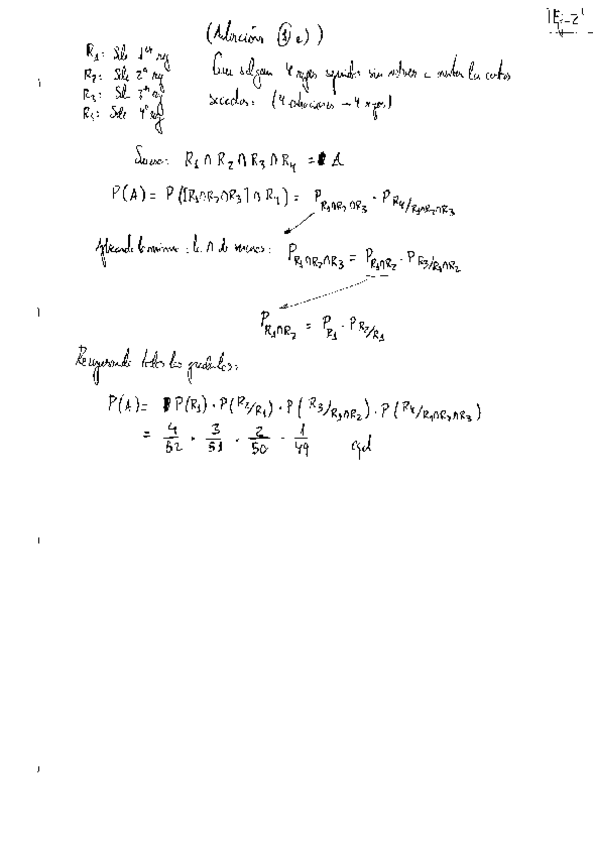 IEJ-2'
(Aclaración ① e))
R₁: Sale 1er rey
R₂: Sale 2º rey
R₃: Sale 3er rey
R₄: Sale 4º rey
Que salgan 4 reyes seguidos sin volver a meter las cartas
sacadas: (4 extracciones → 4 reyes)
Suceso: R₁ ∩ R₂ ∩ R₃ ∩ R₄ = A
P(A) = P([R₁∩R₂∩R₃] ∩ R₄) = P R₁∩R₂∩R₃ · P R₄/R₁∩R₂∩R₃
Aplicando lo mismo: la ∩ de sucesos: P R₁∩R₂∩R₃ = P R₁∩R₂ · P R₃/R₁∩R₂
P R₁∩R₂ = P R₁ · P R₂/R₁
Recuperando todos los productos:
P(A) = P(R₁) · P(R₂/R₁) · P(R₃/R₁∩R₂) · P(R₄/R₁∩R₂∩R₃)
= 4/52 · 3/51 · 2/50 · 1/49 cqd